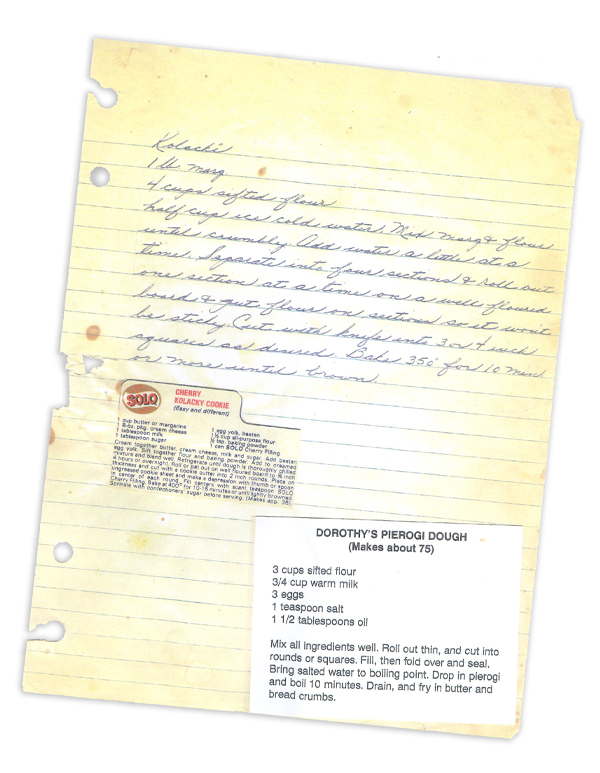 Kolachi
1 lb marg
4 cups sifted flour
half cup ice cold water. Mix marg & flour
until crumbly. Add water a little at a
time. Separate into four sections & roll out
one section at a time on a well floured
board & put flour on sections so it won't
be sticky. Cut with knife into 3 or 4 inch
squares as desired. Bake 350° for 10 min
or more until brown.
SOLO
CHERRY
KOLACKY COOKIE
(Easy and different)
1 cup butter or margarine
8-oz. pkg. cream cheese
1 tablespoon milk
1 tablespoon sugar
1 egg yolk, beaten
1½ cup all-purpose flour
½ tsp. baking powder
1 can SOLO Cherry Filling
Cream together butter, cream cheese, milk and sugar. Add beaten
egg yolk. Sift together flour and baking powder. Add to creamed
mixture and blend well. Refrigerate until dough is thoroughly chilled
4 hours or overnight. Roll or pat out on well floured board to ¼ inch
thickness and cut with a cookie cutter into 2 inch rounds. Place on
ungreased cookie sheet and make a depression with thumb or spoon
in center of each round. Fill centers with scant teaspoon SOLO
Cherry Filling. Bake at 400° for 10-15 minutes or until lightly browned.
Sprinkle with confectioners' sugar before serving. (Makes app. 36)
DOROTHY'S PIEROGI DOUGH
(Makes about 75)
3 cups sifted flour
3/4 cup warm milk
3 eggs
1 teaspoon salt
1 1/2 tablespoons oil
Mix all ingredients well. Roll out thin, and cut into
rounds or squares. Fill, then fold over and seal.
Bring salted water to boiling point. Drop in pierogi
and boil 10 minutes. Drain, and fry in butter and
bread crumbs.